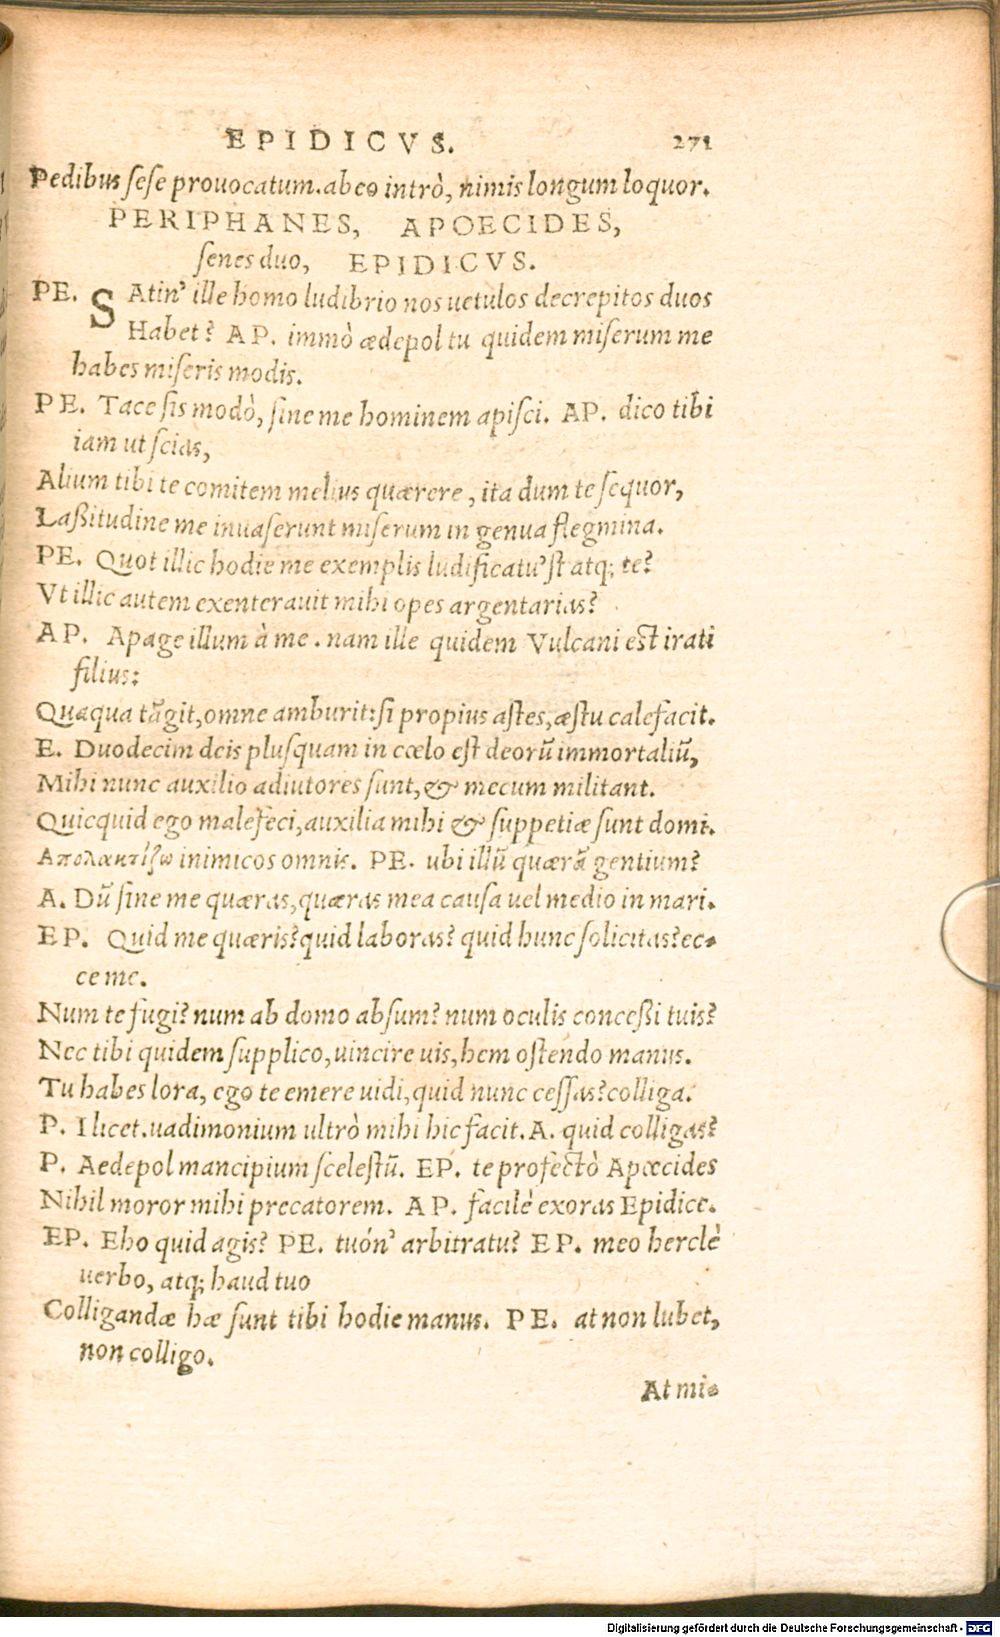 EPIDICVS. 271
Pedibus sese prouocatum. abeo intrò, nimis longum loquor.
PERIPHANES, APOECIDES,
senes duo, EPIDICVS.
PE. SAtin' ille homo ludibrio nos uetulos decrepitos duos
Habet? AP. immò ædepol tu quidem miserum me
habes miseris modis.
PE. Tace sis modò, sine me hominem apisci. AP. dico tibi
iam ut scias,
Alium tibi te comitem melius quærere, ita dum te sequor,
Laßitudine me inuaserunt miserum in genua flegmina.
PE. Quot illic hodie me exemplis ludificatu'st atq; te?
Vt illic autem exenterauit mihi opes argentarias?
AP. Apage illum à me. nam ille quidem Vulcani est irati
filius:
Quaqua tãgit, omne amburit: si propius astes, æstu calefacit.
E. Duodecim deis plusquam in cœlo est deorũ immortaliũ,
Mihi nunc auxilio adiutores sunt, & mecum militant.
Quicquid ego malefeci, auxilia mihi & suppetiæ sunt domi.
Απολακτίζω inimicos omnis. PE. ubi illũ quærã gentium?
A. Dũ sine me quæras, quæras mea causa uel medio in mari.
EP. Quid me quæris? quid laboras? quid hunc solicitas? ec-
ce me.
Num te fugi? num ab domo absum? num oculis conceßi tuis?
Nec tibi quidem supplico, uincire uis, hem ostendo manus.
Tu habes lora, ego te emere uidi, quid nunc cessas? colliga.
P. Ilicet. uadimonium ultrò mihi hic facit. A. quid colligas?
P. Aedepol mancipium scelestũ. EP. te profectò Apœcides
Nihil moror mihi precatorem. AP. facilè exoras Epidice.
EP. Eho quid agis? PE. tuón' arbitratu? EP. meo herclè
uerbo, atq; haud tuo
Colligandæ hæ sunt tibi hodie manus. PE. at non lubet,
non colligo.
At mi-
Digitalisierung gefördert durch die Deutsche Forschungsgemeinschaft - DFG